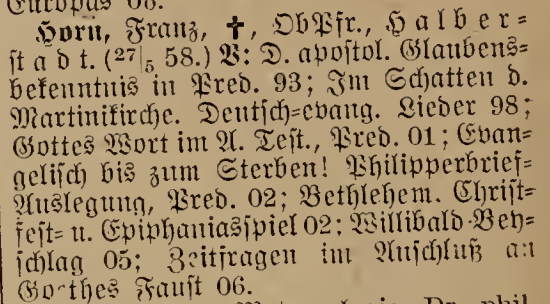 Europas 08.
Horn, Franz, ✝, ObPfr., Halber=
stadt. (27/5 58.) V: D. apostol. Glaubens=
bekenntnis in Pred. 93; Im Schatten d.
Martinikirche. Deutsch=evang. Lieder 98;
Gottes Wort im A. Test., Pred. 01; Evan=
gelisch bis zum Sterben! Philipperbrief=
Auslegung, Pred. 02; Bethlehem. Christ=
fest= u. Epiphaniasspiel 02; Willibald Bey=
schlag 05; Zeitfragen im Anschluß an
Goethes Faust 06.
Dr. phil.